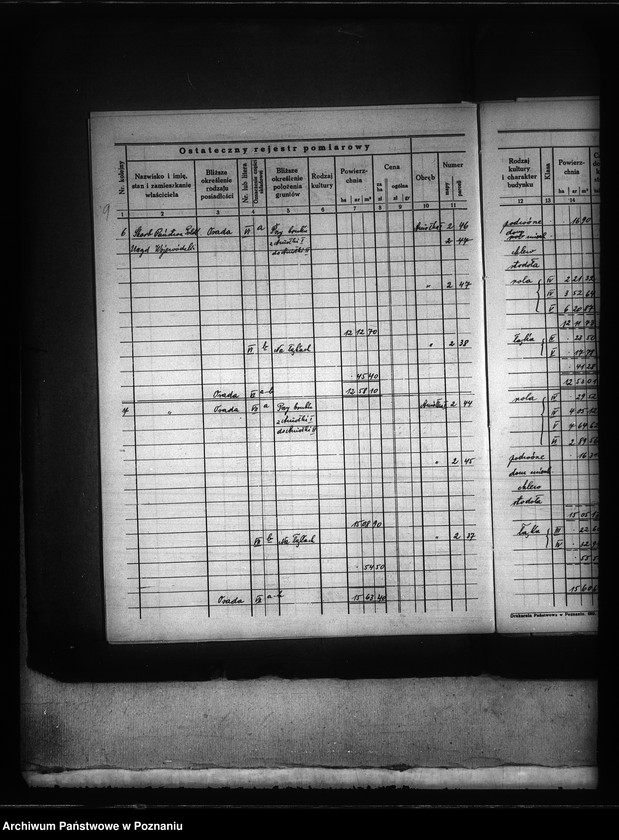 Ostateczny rejestr pomiarowy
Nr. kolejny
Nazwisko i imię, stan i zamieszkanie właściciela
Bliższe określenie rodzaju posiadłości
Nr. lub litera
Oznaczenie części składowej
Bliższe określenie położenia gruntów
Rodzaj kultury
Powierzchnia
ha ar m²
Cena
za ha
ogólna
zł zł gr
Obręb
Numer
mapy parceli
1 2 3 4 5 6 7 8 9 10 11
6 Skarb Państwa Osada VI a Przy bruku 2 46
Urząd Wojewódzki 2 47
" 2 47
12 12 70
VI b Na Łąkach " 2 38
. 45 40
Osada VI a-b 12 58 10
7 " Osada VII a Przy bruku 2 44
" 2 45
15 08 90
VII b Na Łąkach " 2 37
. 54 50
Osada VII a-b 15 63 40
Rodzaj kultury i charakter budynku
Klasa
Powierzchnia
ha ar m²
12 13 14
podwórze . 16 90
dom mieszk
chlew
stodoła
rola IV 2 21
IV 3 52 64
V 6 20 87
12 11
łąka IV . 23 50
V . 17 78
. 41 28
12 53 01
rola IV . 29 52
V 4 64 62
VI 2 84 56
podwórze . 16
dom mieszk
chlew
stodoła
15 05
łąka III . 22
IV . 22
15 60
Drukarnia Państwowa w Poznaniu.
Archiwum Państwowe w Poznaniu